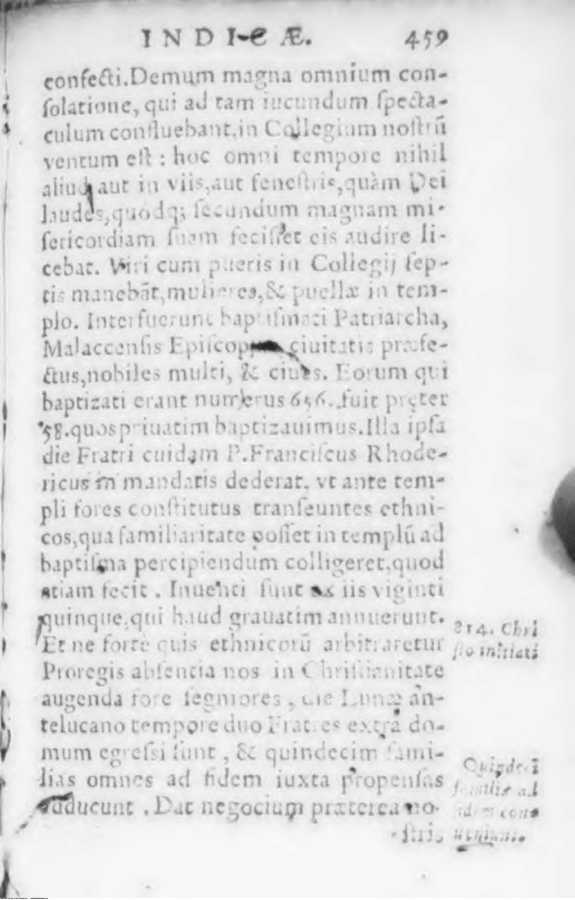 INDICÆ. 459
confecti. Demum magna omnium con-
ſolatione, qui ad tam iucundum ſpecta-
culum confluebant, in Collegium noſtrū
ventum eſt: hoc omni tempore nihil
aliud aut in viis, aut feneſtris, quàm Dei
laudes, quodq; ſecundum magnam mi-
ſericordiam ſuam feciſſet eis audire li-
cebat. Viri cum pueris in Collegij ſep-
tis manebāt, mulieres, & puellæ in tem-
plo. Interfuerunt baptiſmati Patriarcha,
Malaccenſis Epiſcopus ciuitatis præfe-
ctus, nobiles multi, & ciues. Eorum qui
baptizati erant numerus 656. fuit pręter
58. quos priuatim baptizauimus. Illa ipſa
die Fratri cuidam P. Franciſcus Rhode-
ricus in mandatis dederat, vt ante tem-
pli fores conſtitutus tranſeuntes ethni-
cos, qua familiaritate poſſet in templū ad
baptiſma percipiendum colligeret, quod
etiam fecit. Inuenti ſunt ex iis viginti
quinque, qui haud grauatim annuerunt.
Et ne fortè quis ethnicorū arbitraretur
Proregis abſentia nos in Chriſtianitate
augenda fore ſegniores, die Lunæ an-
telucano tempore duo Fratres extra do-
mum egreſſi ſunt, & quindecim fami-
lias omnes ad fidem iuxta propenſas
adducunt. Dat negocium præterea no-
ſtris
814. Chri
ſto initiati
Quīdecī
familiæ ad